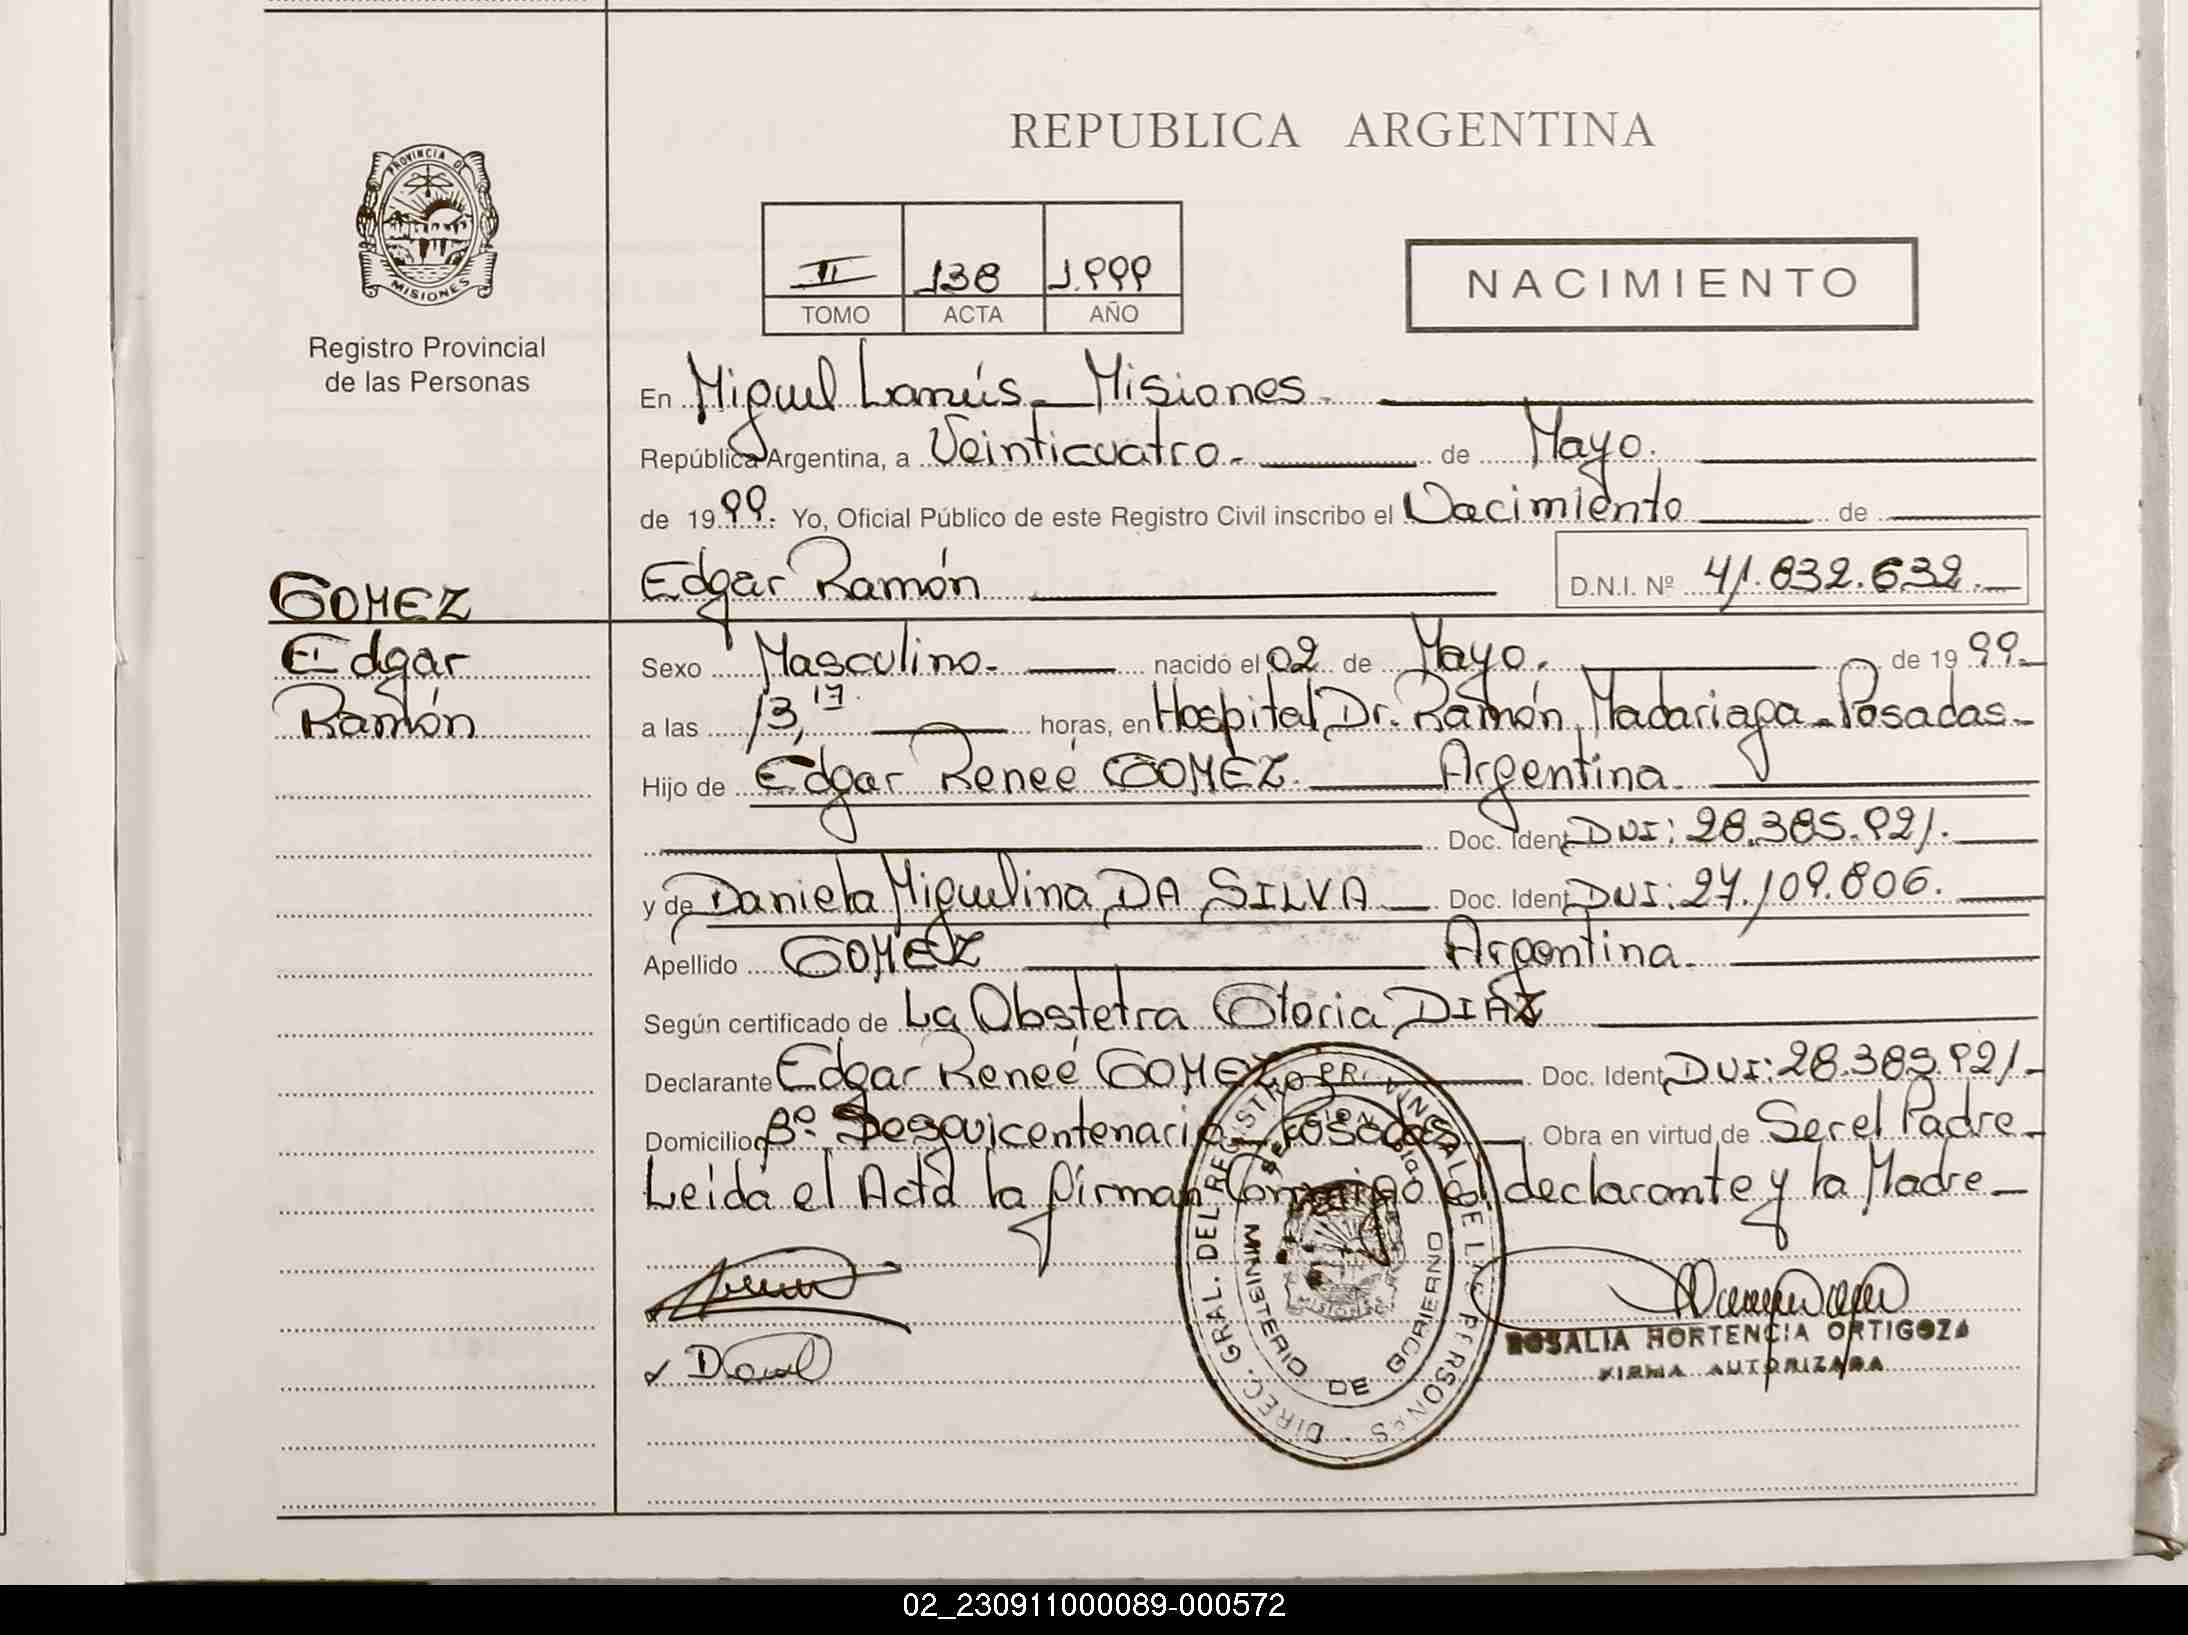 REPUBLICA ARGENTINA
PROVINCIA DE
MISIONES
Registro Provincial
de las Personas
II 138 1.999
TOMO ACTA AÑO
NACIMIENTO
En Miguel Lanús - Misiones.
República Argentina, a Veinticuatro.- de Mayo.
de 1999. Yo, Oficial Público de este Registro Civil inscribo el Nacimiento de
GOMEZ
Edgar Ramón D.N.I. Nº 41.832.632.-
Edgar
Ramón
Sexo Masculino.- nacido el 02 de Mayo. de 1999.-
a las 13,17. horas, en Hospital Dr. Ramón Madariaga - Posadas.-
Hijo de Edgar Reneé GOMEZ. Argentina.
Doc. Ident. DNI: 28.385.921.
y de Daniela Miguelina DA SILVA Doc. Ident. DNI: 27.109.806.
Apellido GOMEZ Argentina.
Según certificado de La Obstetra Gloria DIAZ
Declarante Edgar Reneé GOMEZ Doc. Ident. DNI: 28.385.921.-
Domicilio Bº. Sesquicentenario - Posadas Obra en virtud de Ser el Padre.-
Leida el Acta la firman Conmigo el declarante y la Madre -
DIREC. GRAL. DEL REGISTRO PROVINCIAL DE LAS PERSONAS
MINISTERIO DE GOBIERNO
MISIONES
ROSALIA HORTENCIA ORTIGOZA
FIRMA AUTORIZADA
02_230911000089-000572